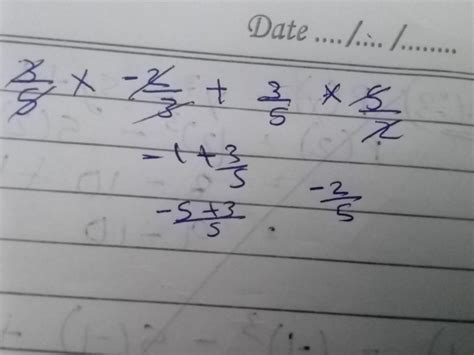 Date ..../..../........
3/5 × -2/3 + 3/5 × 5/2
-1 + 3/5
-5+3/5 . -2/5